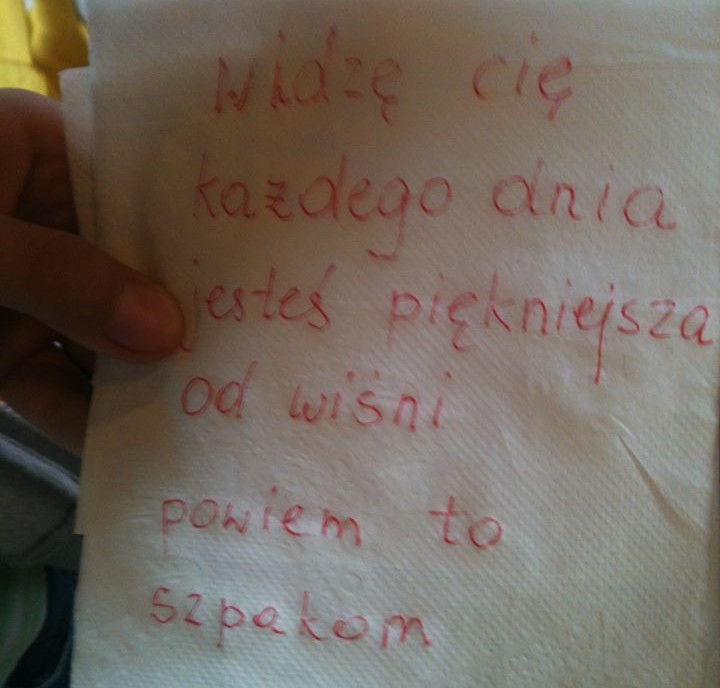 Widzę cię
każdego dnia
jesteś piękniejsza
od wiśni
powiem to
szpakom